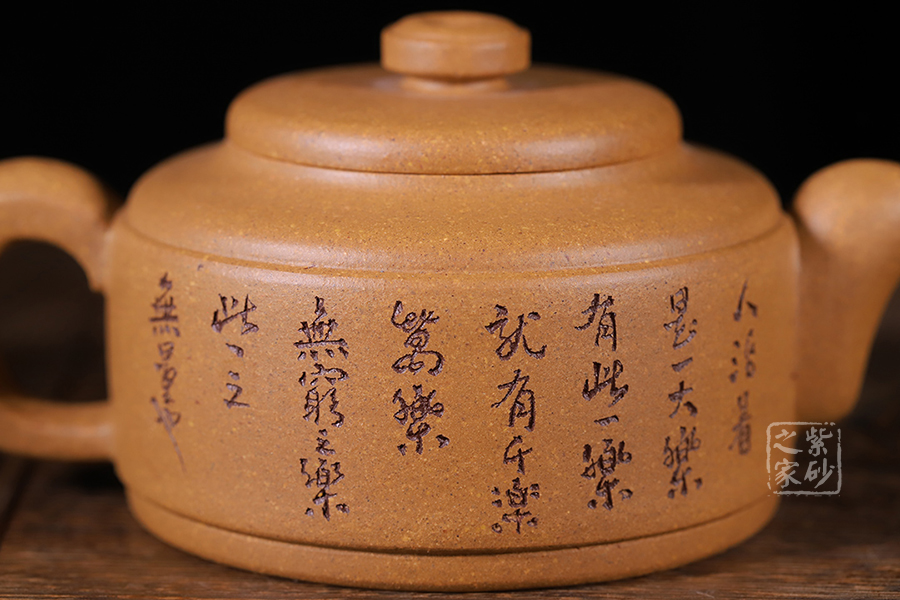 人活着
是一大樂
有此一樂
就有千樂
萬樂
無窮之樂
此
之
無
紫砂
之家